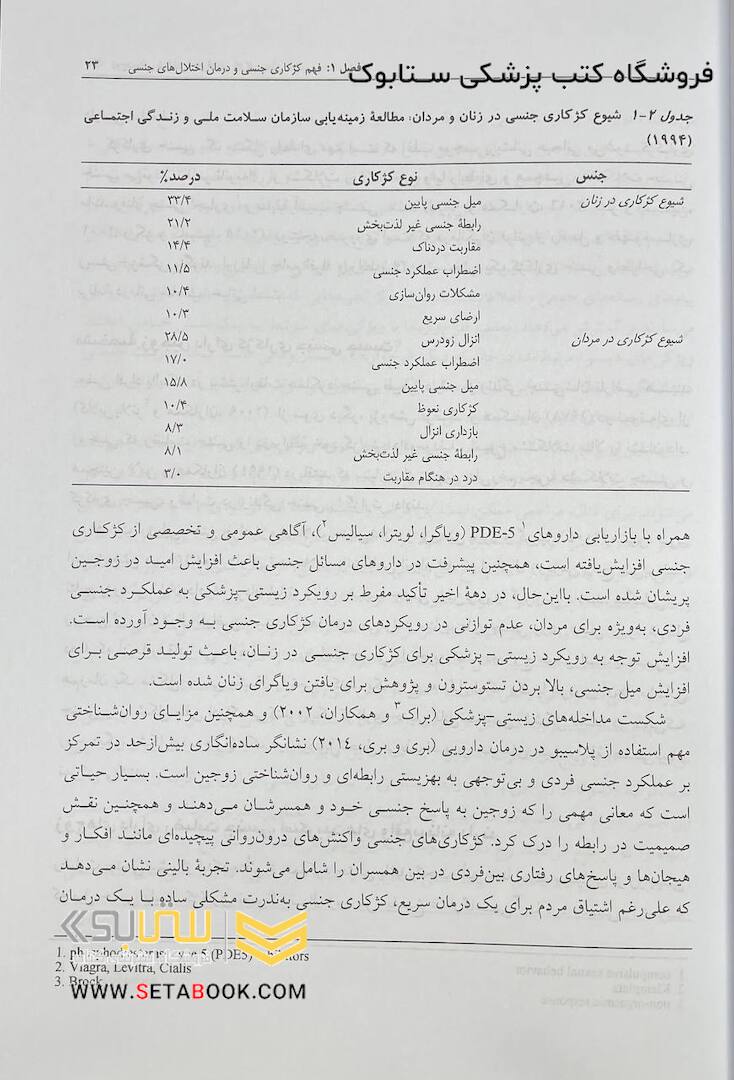 فروشگاه کتب پزشکی ستابوک
فصل ۱: فهم کژکاری جنسی و درمان اختلال‌های جنسی ۲۳
جدول ۲-۱ شیوع کژکاری جنسی در زنان و مردان: مطالعهٔ زمینه‌یابی سازمان سلامت ملی و زندگی اجتماعی
(۱۹۹۴)
جنس نوع کژکاری درصد%
شیوع کژکاری در زنان میل جنسی پایین ۳۳/۴
رابطهٔ جنسی غیر لذت‌بخش ۲۱/۲
مقاربت دردناک ۱۴/۴
اضطراب عملکرد جنسی ۱۱/۵
مشکلات روان‌سازی ۱۰/۴
ارضای سریع ۱۰/۳
شیوع کژکاری در مردان انزال زودرس ۲۸/۵
اضطراب عملکرد جنسی ۱۷/۰
میل جنسی پایین ۱۵/۸
کژکاری نعوظ ۱۰/۴
بازداری انزال ۸/۳
رابطهٔ جنسی غیر لذت‌بخش ۸/۱
درد در هنگام مقاربت ۳/۰
همراه با بازاریابی داروهای PDE-5 ¹ (ویاگرا، لویترا، سیالیس²)، آگاهی عمومی و تخصصی از کژکاری
جنسی افزایش‌یافته است، همچنین پیشرفت در داروهای مسائل جنسی باعث افزایش امید در زوجین
پریشان شده است. بااین‌حال، در دههٔ اخیر تأکید مفرط بر رویکرد زیستی-پزشکی به عملکرد جنسی
فردی، به‌ویژه برای مردان، عدم توازنی در رویکردهای درمان کژکاری جنسی به وجود آورده است.
افزایش توجه به رویکرد زیستی- پزشکی برای کژکاری جنسی در زنان، باعث تولید قرصی برای
افزایش میل جنسی، بالا بردن تستوسترون و پژوهش برای یافتن ویاگرای زنان شده است.
شکست مداخله‌های زیستی-پزشکی (براک³ و همکاران، ۲۰۰۲) و همچنین مزایای روان‌شناختی
مهم استفاده از پلاسیبو در درمان دارویی (بری و بری، ۲۰۱۴) نشانگر ساده‌انگاری بیش‌ازحد در تمرکز
بر عملکرد جنسی فردی و بی‌توجهی به بهزیستی رابطه‌ای و روان‌شناختی زوجین است. بسیار حیاتی
است که معانی مهمی را که زوجین به پاسخ جنسی خود و همسرشان می‌دهند و همچنین نقش
صمیمیت در رابطه را درک کرد. کژکاری‌های جنسی واکنش‌های درون‌روانی پیچیده‌ای مانند افکار و
هیجان‌ها و پاسخ‌های رفتاری بین‌فردی در بین همسران را شامل می‌شوند. تجربهٔ بالینی نشان می‌دهد
که علی‌رغم اشتیاق مردم برای یک درمان سریع، کژکاری جنسی به‌ندرت مشکلی ساده با یک درمان
2. Viagra, Levitra, Cialis
3. Brock
WWW.SETABOOK.COM